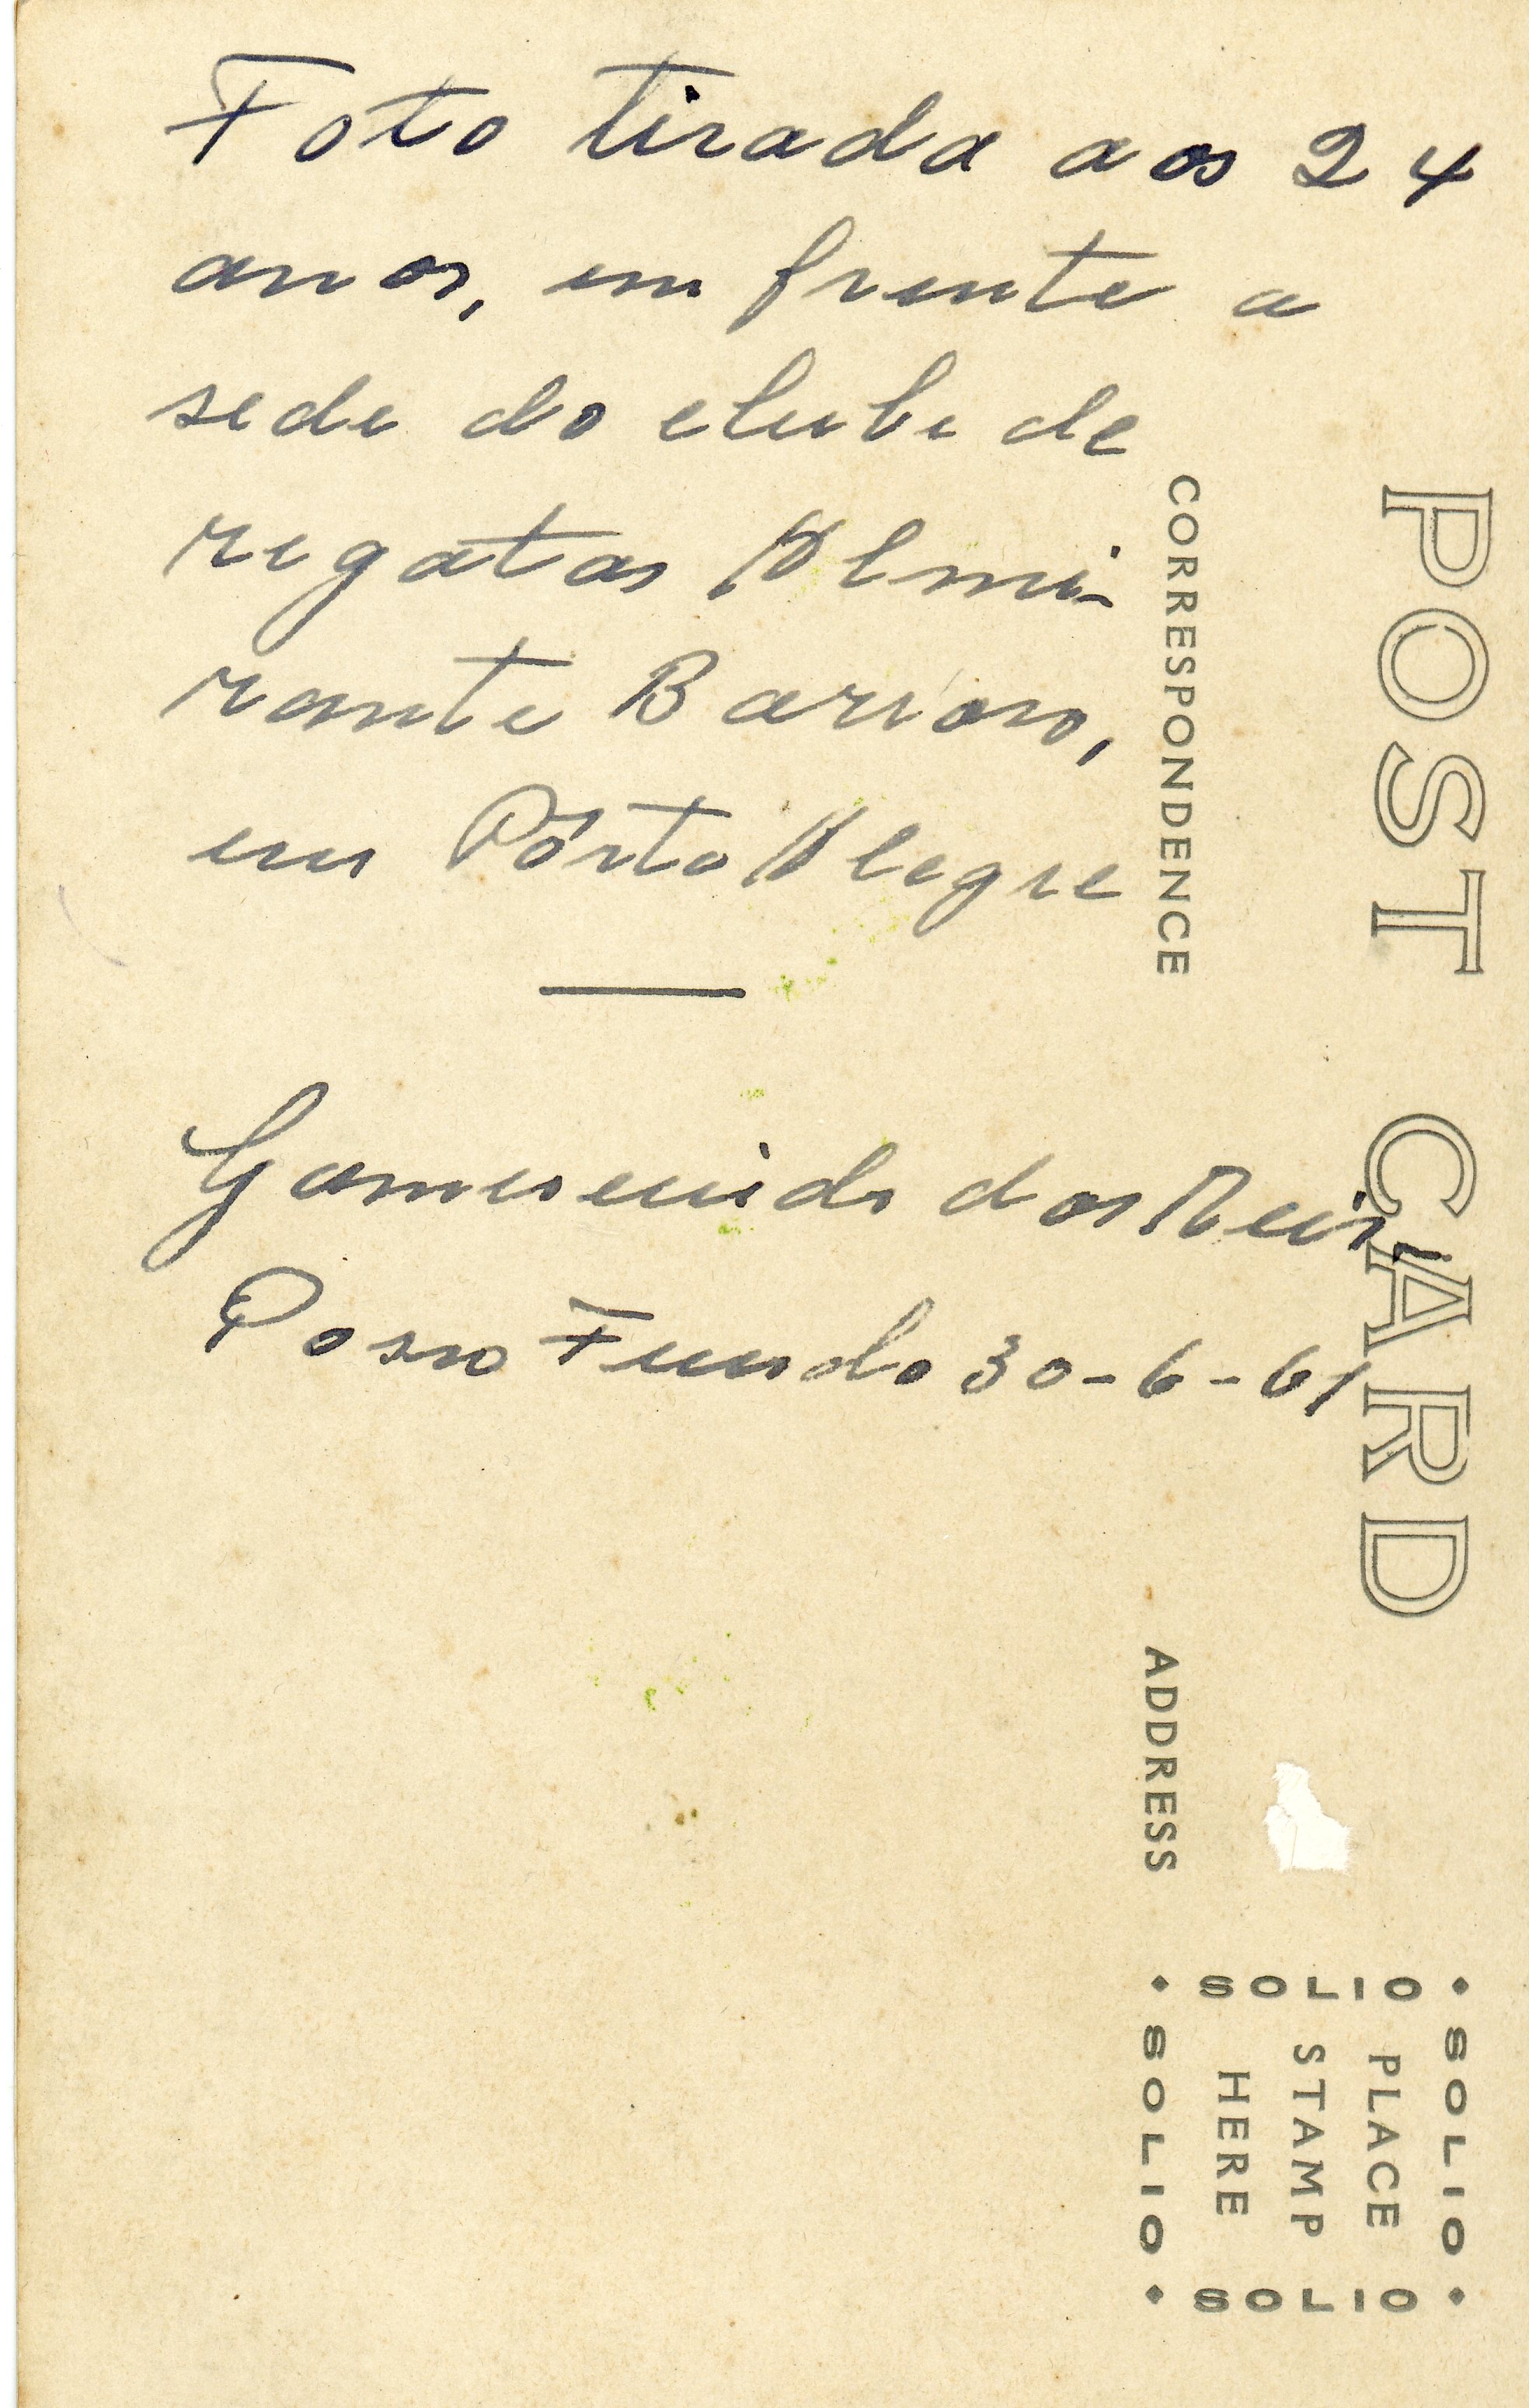 Foto tirada aos 24
anos, em frente a
sede do clube de
regatas Almi-
rante Barroso,
em Pôrto Alegre
dos Reis
Passo Fundo 30-6-61
POST CARD
CORRESPONDENCE
ADDRESS
SOLIO
SOLIO
PLACE
STAMP
HERE
SOLIO
SOLIO